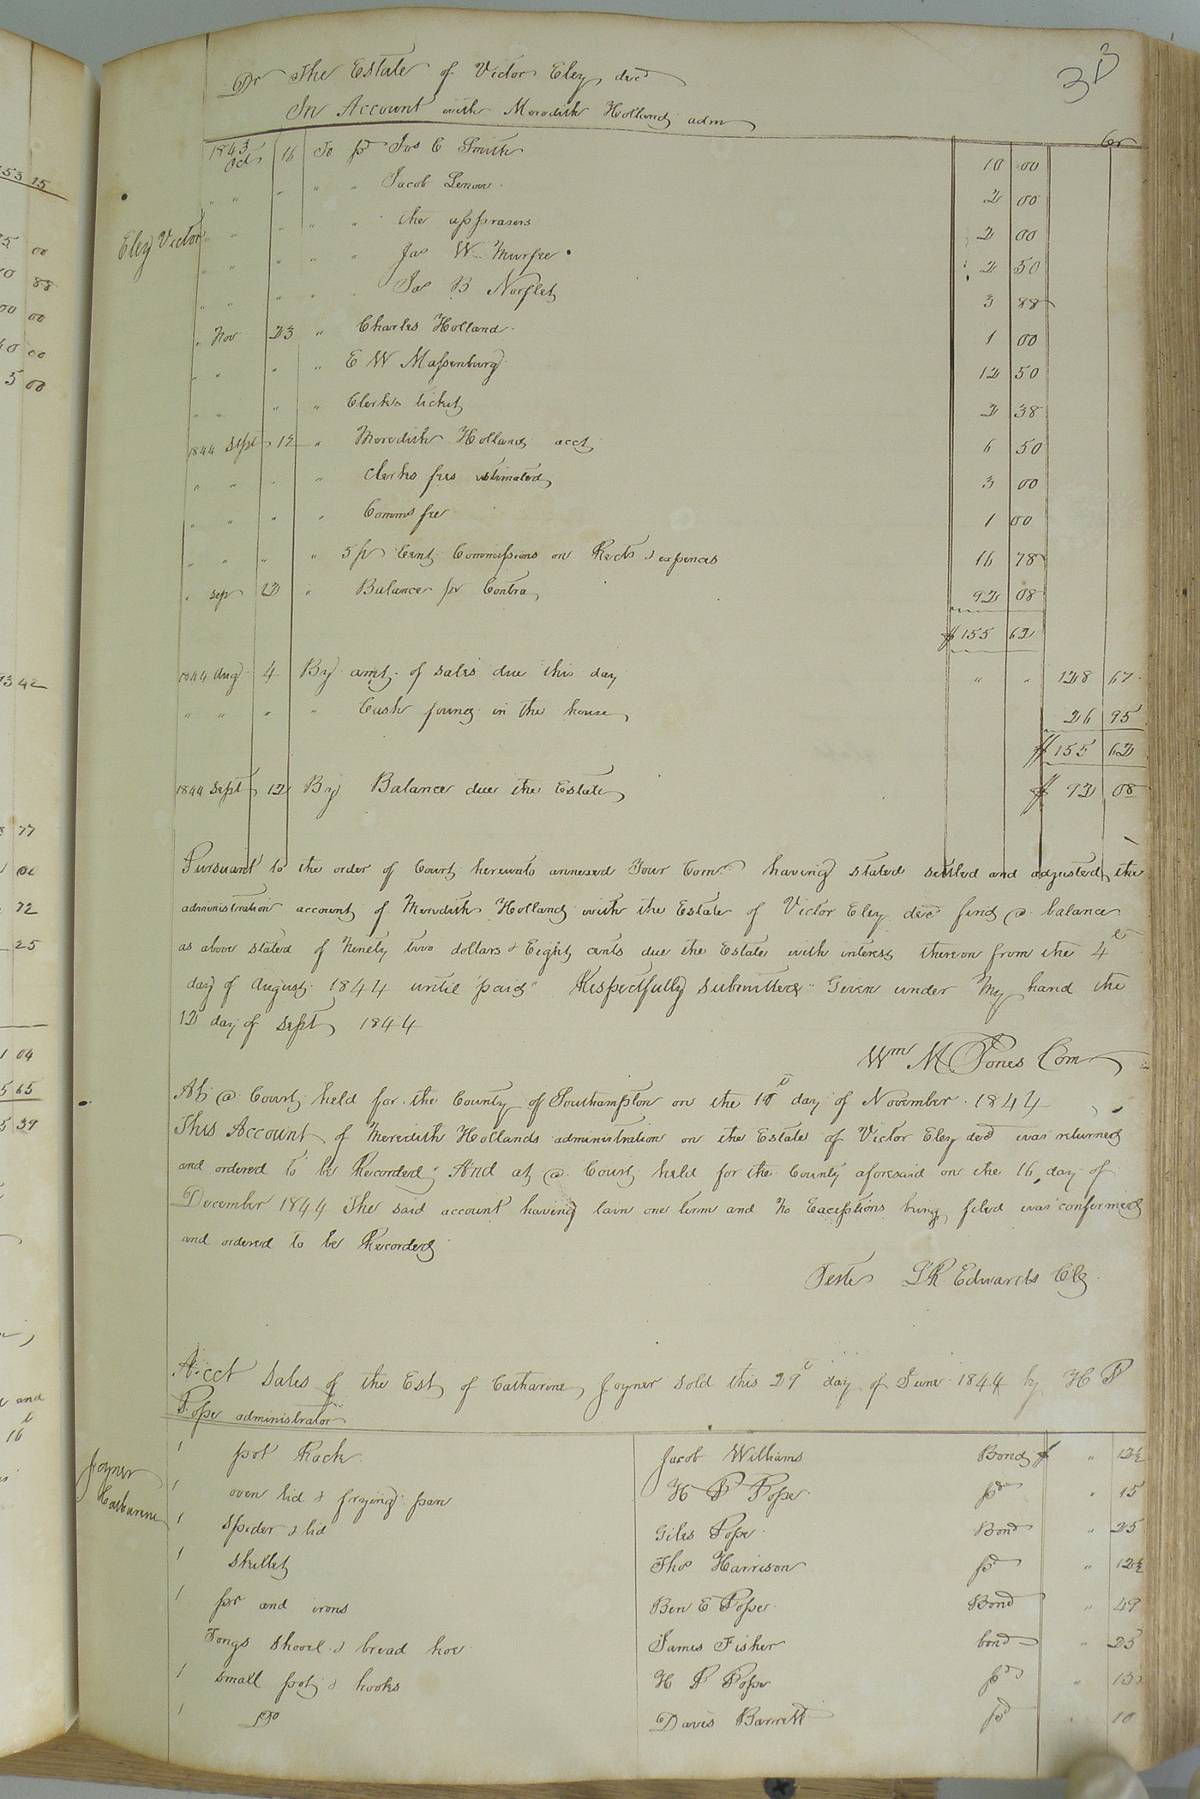 33
Dr The Estate of Victor Eley decd
In Account with Meredith Holland adm
Cr
1843 Oct 16 To pd Jas C Smith 10 00
" " " " " Jacob Lenow 2 00
" " " " " the apprasers 2 00
Eley Victor
" " " " " Jas W Murfee 2 50
" " " " " Jas B Norflet 3 88
" Nov 23 " Charles Holland 1 00
" " " " E W Massenburg 12 50
" " " " Clerks ticket 2 38
1844 Sept 12 " Meredith Holland acct 6 50
" " " " Clerks fees estimated 3 00
" " " " Comms fee 1 00
" " " " 5 pr Cent Commissions on Rects & expences 16 78
" sep 12 " Balance pr Contra 92 08
$ 155 62
1844 Aug 4 By amt of sales due this day " " 128 67
" " " " Cash found in the house 26 95
$ 155 62
1844 Sept 12 By Balance due the Estate $ 92 08
Pursuant to the order of Court hereunto annexed Your Comr having stated settled and adjusted the
administration account of Meredith Holland with the Estate of Victor Eley decd find a balance
as above stated of Ninety two dollars & Eight cents due the Estate with interest thereon from the 4th
day of August 1844 until paid" Respectfully submitted" Given under My hand the
12 day of Sept 1844
Wm M Jones Com
At a Court held for the County of Southampton on the day of November 1844
This Account of Meredith Hollands administration on the Estate of Victor Eley decd was returned
and ordered to be Recorded" And at a Court held for the County aforesaid on the 16 day of
December 1844 The said account having lain one term and No Exceptions being filed was confirmed
and ordered to be Recorded
Teste L R Edwards Clk
Acct Sales of the Est of Catharine Joyner sold this 29 day of June 1844 by H P
Pope administrator
1 pot Rack Jacob Williams Bond $ " 12½
Joyner Catharine
1 oven lid & frying pan H P Pope pd " 15
1 Spider & lid Giles Pope Bond " 25
1 Skillet Thos Harrison pd " 12½
1 pr and irons Ben E Pope Bond " 49
Tongs shovel & bread hoe James Fisher bond " 25
1 small pot & hooks H P Pope pd "
1 Do Davis Barrett pd " 10